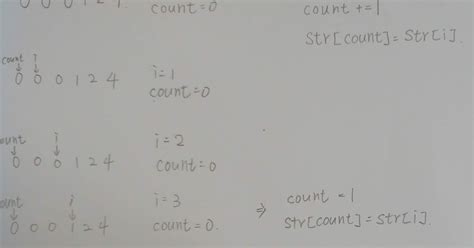 0 0 0 1 2 4 count=0 count += 1
Str[count]= Str[i].
count i
0 0 0 1 2 4 i=1
count=0
count i
0 0 0 1 2 4 i=2
count=0
count i
0 0 0 1 2 4 i=3
count=0. ⇒ count = 1
str[count]=str[i].